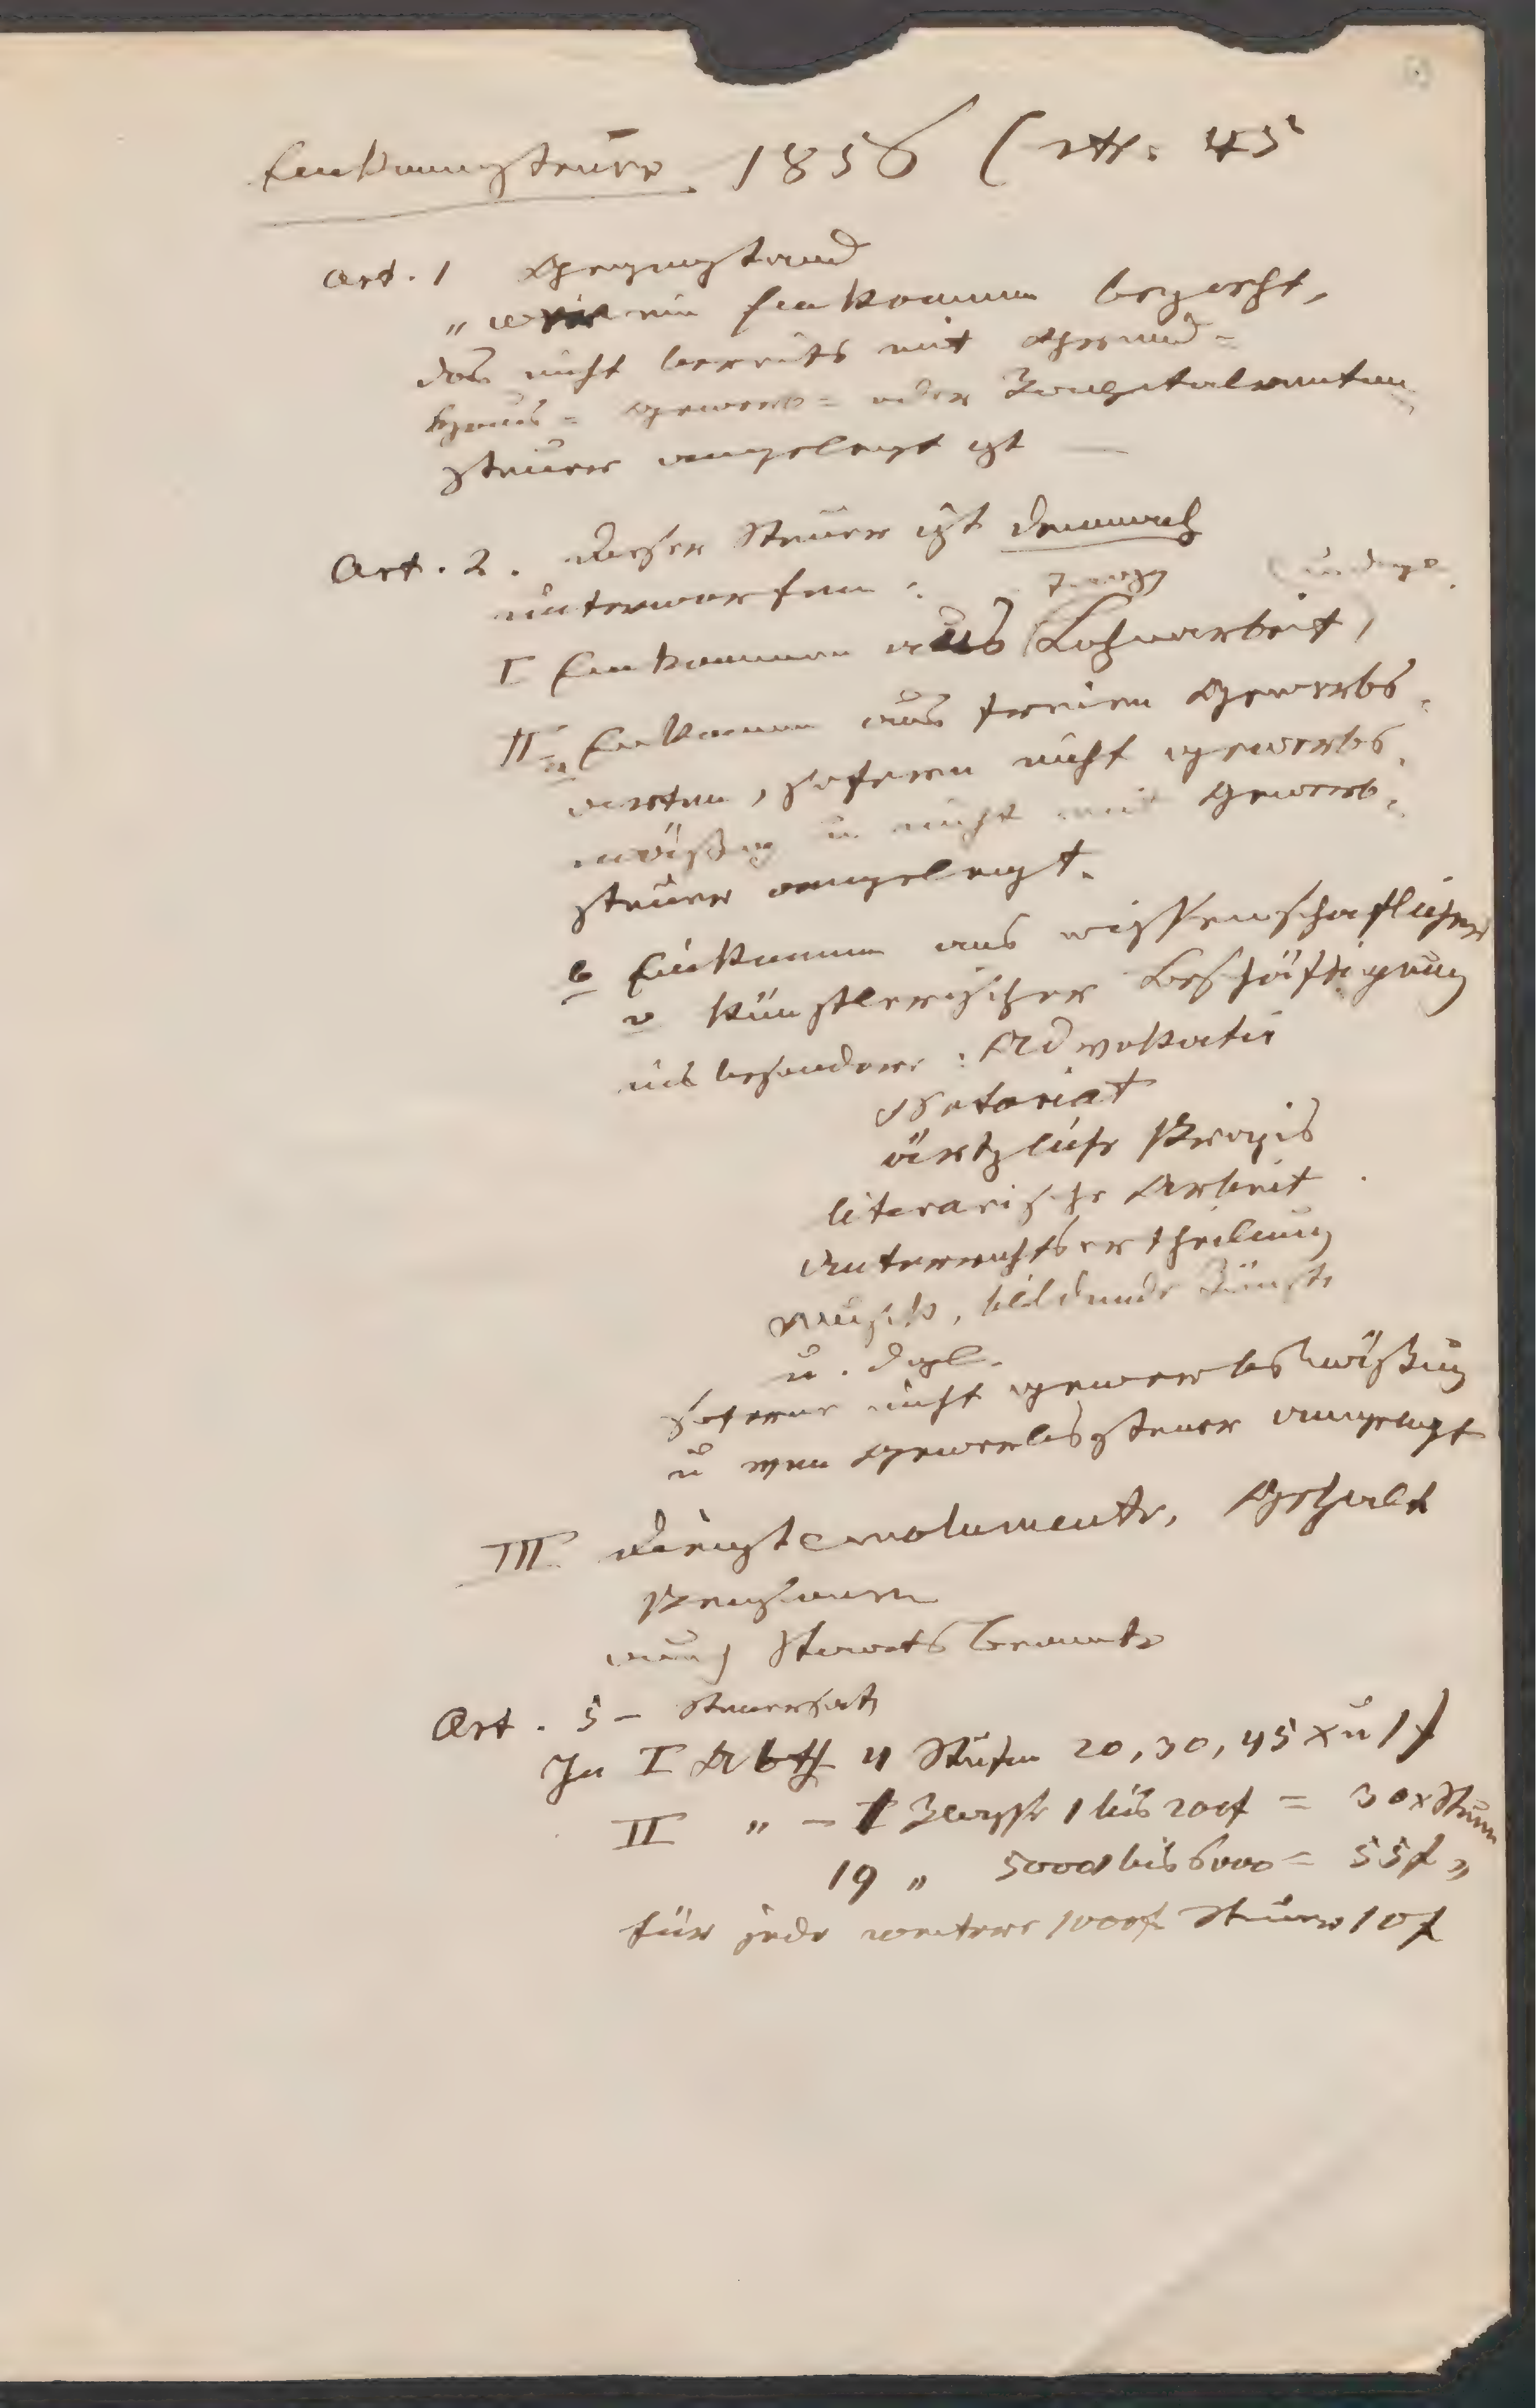 Einkommensteuer 1856 (
Art. 1 Gegenstand
„ wer ein Einkommen bezieht,
das nicht bereits mit Grund=
Haus= Gewerb= oder Kapitalrenten
steuer angelegt ist —
Art. 2. Dieser Steuer ist demnach
unterworfen:
I Einkommen aus (Lohnarbeit)
II a Einkommen aus freien Gewerbs=
arten, sofern nicht gewerbs=
mäßig u nicht mit Gewerb=
steuer angelegt.
b Einkommen aus wissenschaftlicher
o künstlerischer Beschäftigung
insbesondere: Advokatie
Notariat
ärtzliche Praxis
literarische Arbeit
Unterrichtsertheilung
Musik, bildende Künste
u. dgl.
soferne nicht gewerbsmäßig
u von Gewerbssteuer angelegt
III Dienstemolumente, Gehalt
Pensionen
auch Staatsbeamte
Art. 5 – Steuersatz
In I Abth 4 Stufen 20, 30, 45 x u 1 f
II „ – I Klasse 1 bis 200f = 30x Steuer
19 „ 5000 bis 6000 = 55f „
für jede weitere 1000f Steuer 10f